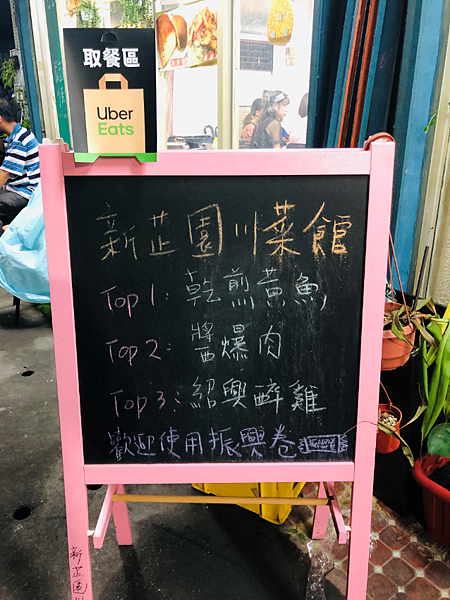 取餐區
Uber
Eats
新芷園川菜館
Top 1: 乾煎黃魚
Top 2: 醬爆肉
Top 3: 紹興醉雞
歡迎使用振興卷
新芷園